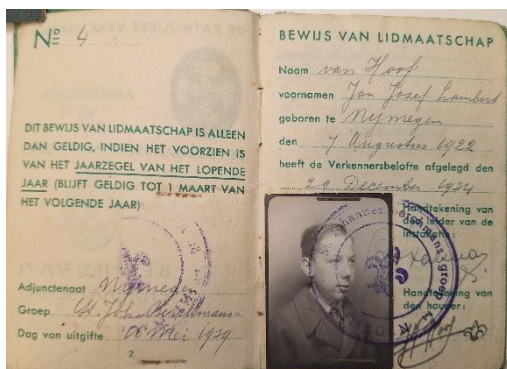 No 4
DIT BEWIJS VAN LIDMAATSCHAP IS ALLEEN
DAN GELDIG, INDIEN HET VOORZIEN IS
VAN HET JAARZEGEL VAN HET LOPENDE
JAAR (BLIJFT GELDIG TOT 1 MAART VAN
HET VOLGENDE JAAR)
Adjunctenaat Nijmegen
Groep St. Joh. Berchmans
Dag van uitgifte Mei 1939
2
BEWIJS VAN LIDMAATSCHAP
Naam van Hoof
voornamen Jan Josef Lambert
geboren te Nijmegen
den 7 Augustus 1922
heeft de Verkennersbelofte afgelegd den
29 December 1934
Handtekening van
den leider van de
installatie:
Handtekening van
den houder:
Johannes Berchmans groep